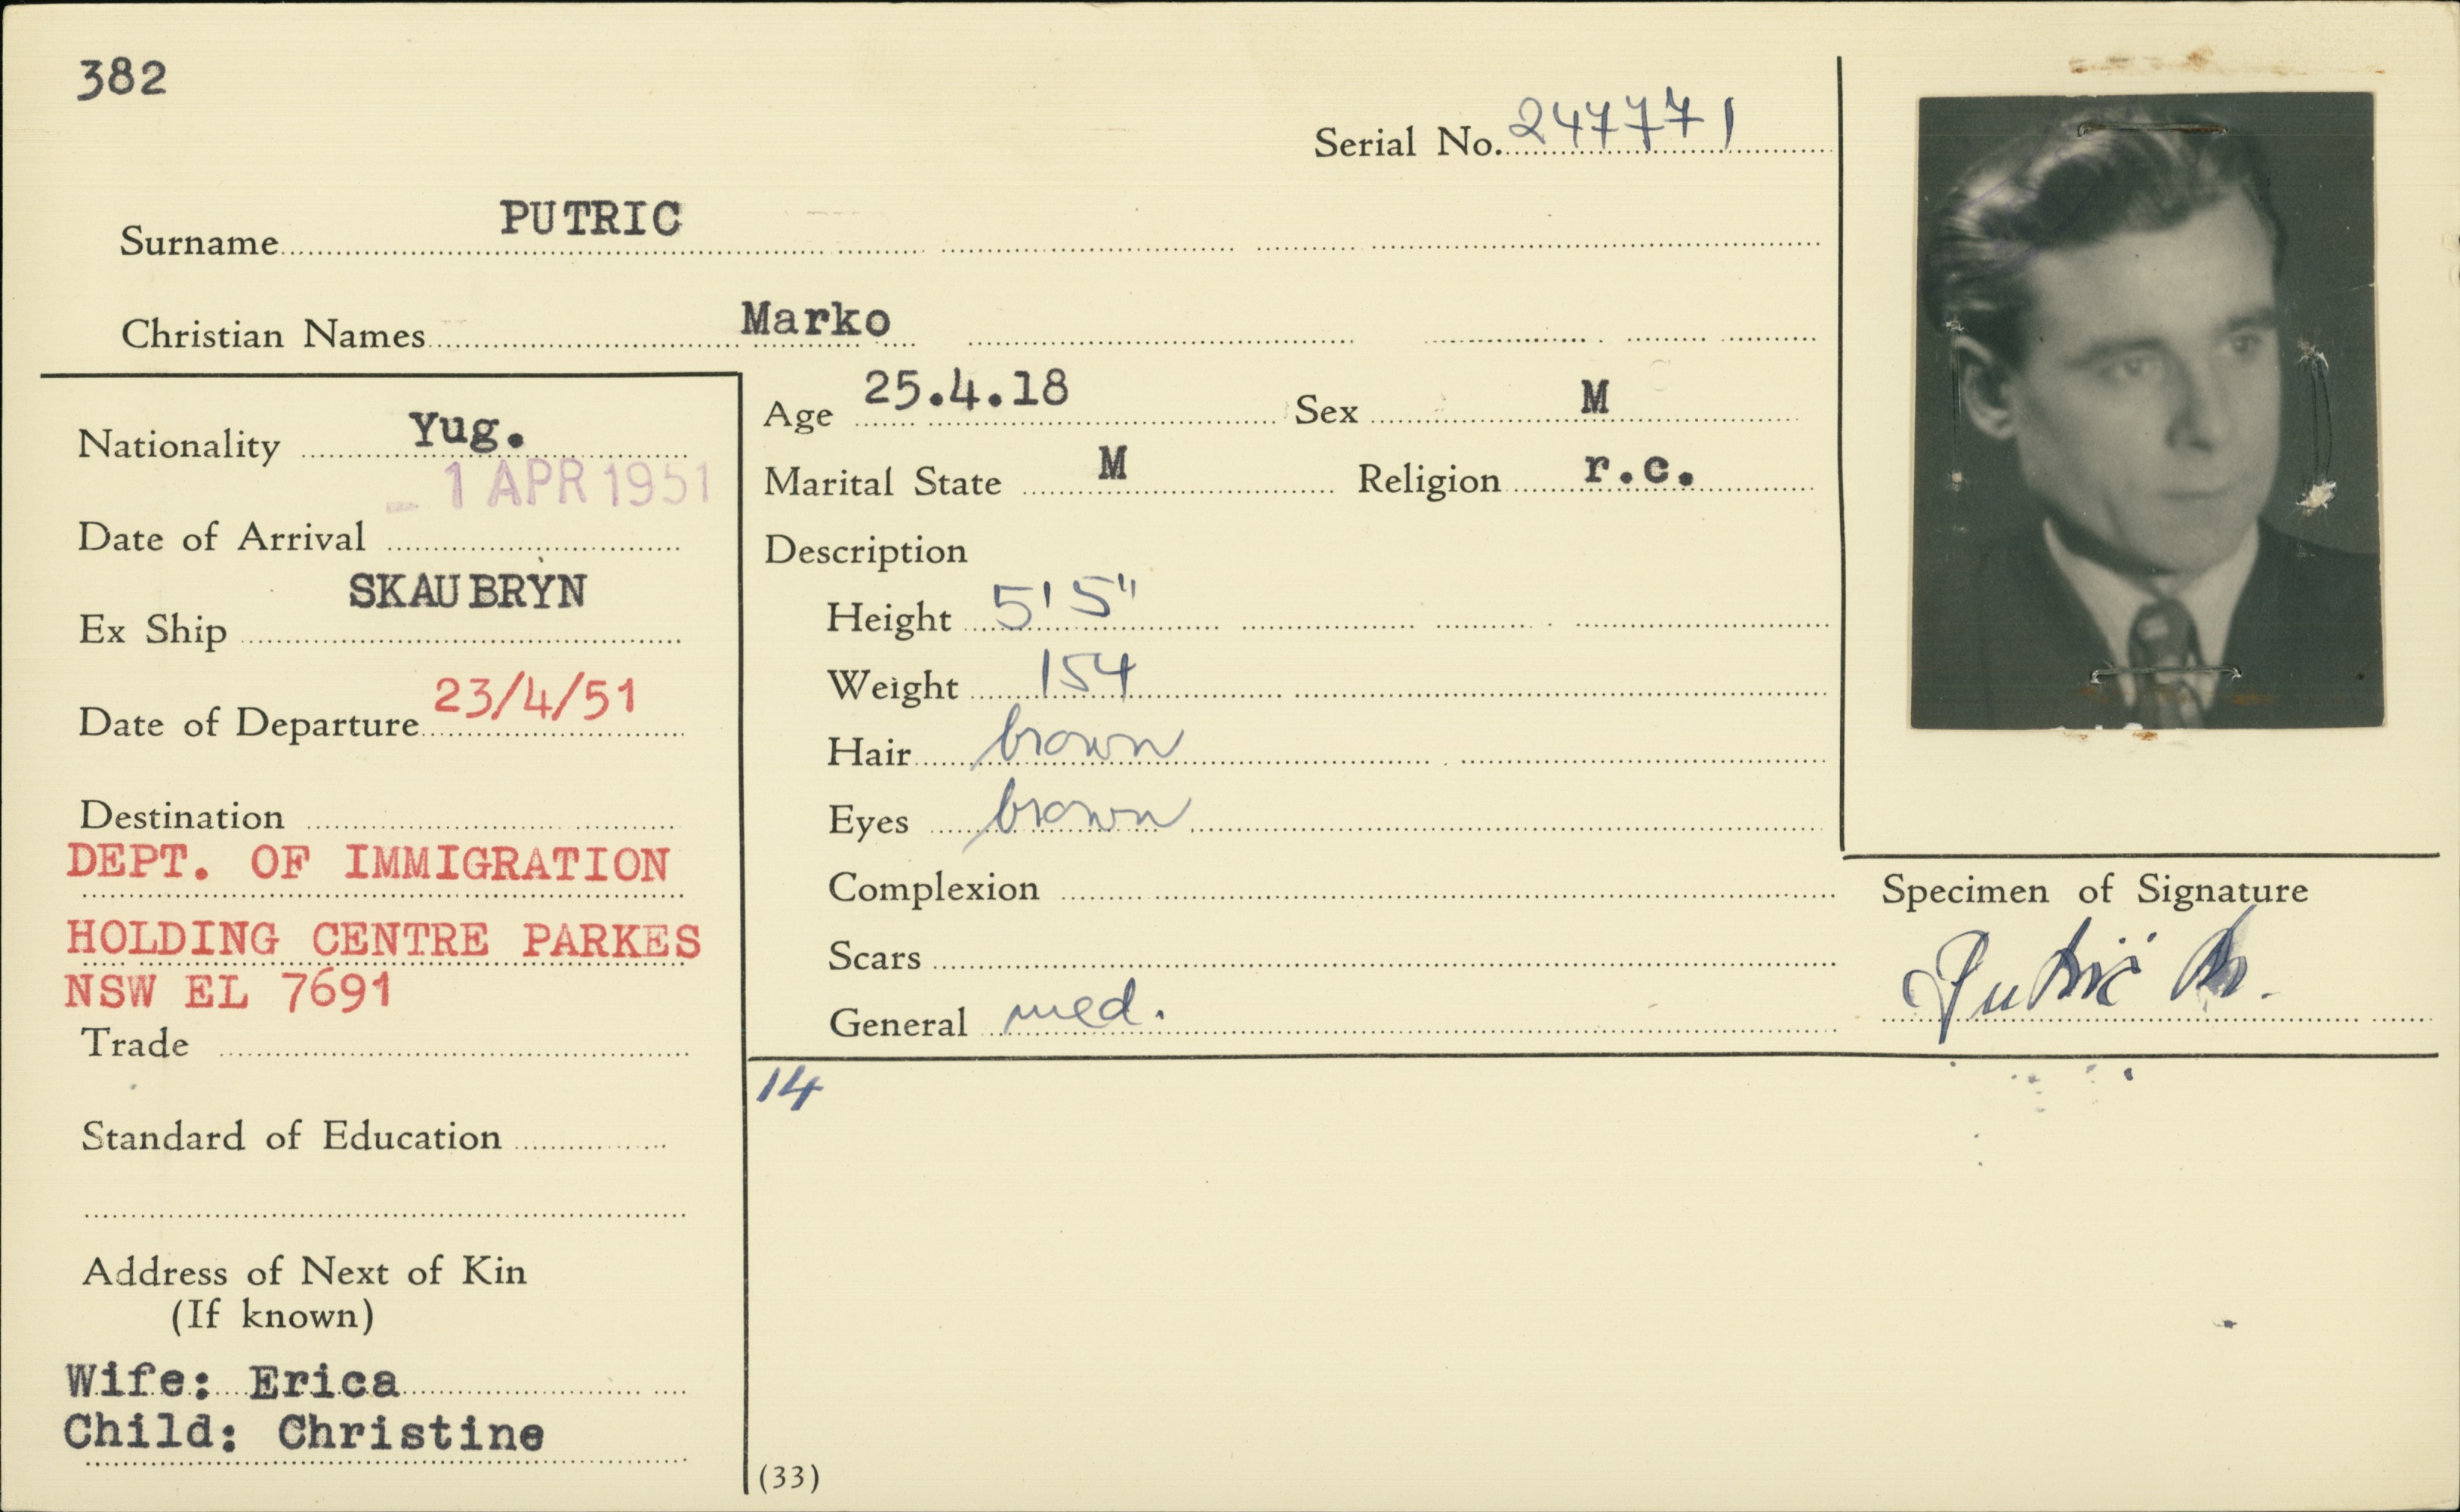 382
Serial No. 247771
Surname PUTRIC
Christian Names Marko
Nationality Yug.
Date of Arrival - 1 APR 1951
Ex Ship SKAUBRYN
Date of Departure 23/4/51
Destination
DEPT. OF IMMIGRATION
HOLDING CENTRE PARKES
NSW EL 7691
Trade
Standard of Education
Address of Next of Kin
(If known)
Wife: Erica
Child: Christine
Age 25.4.18 Sex M
Marital State M Religion r.c.
Description
Height 5' 5"
Weight 154
Hair brown
Eyes brown
Complexion
Scars
General med.
Specimen of Signature
Putrić M.
14
(33)